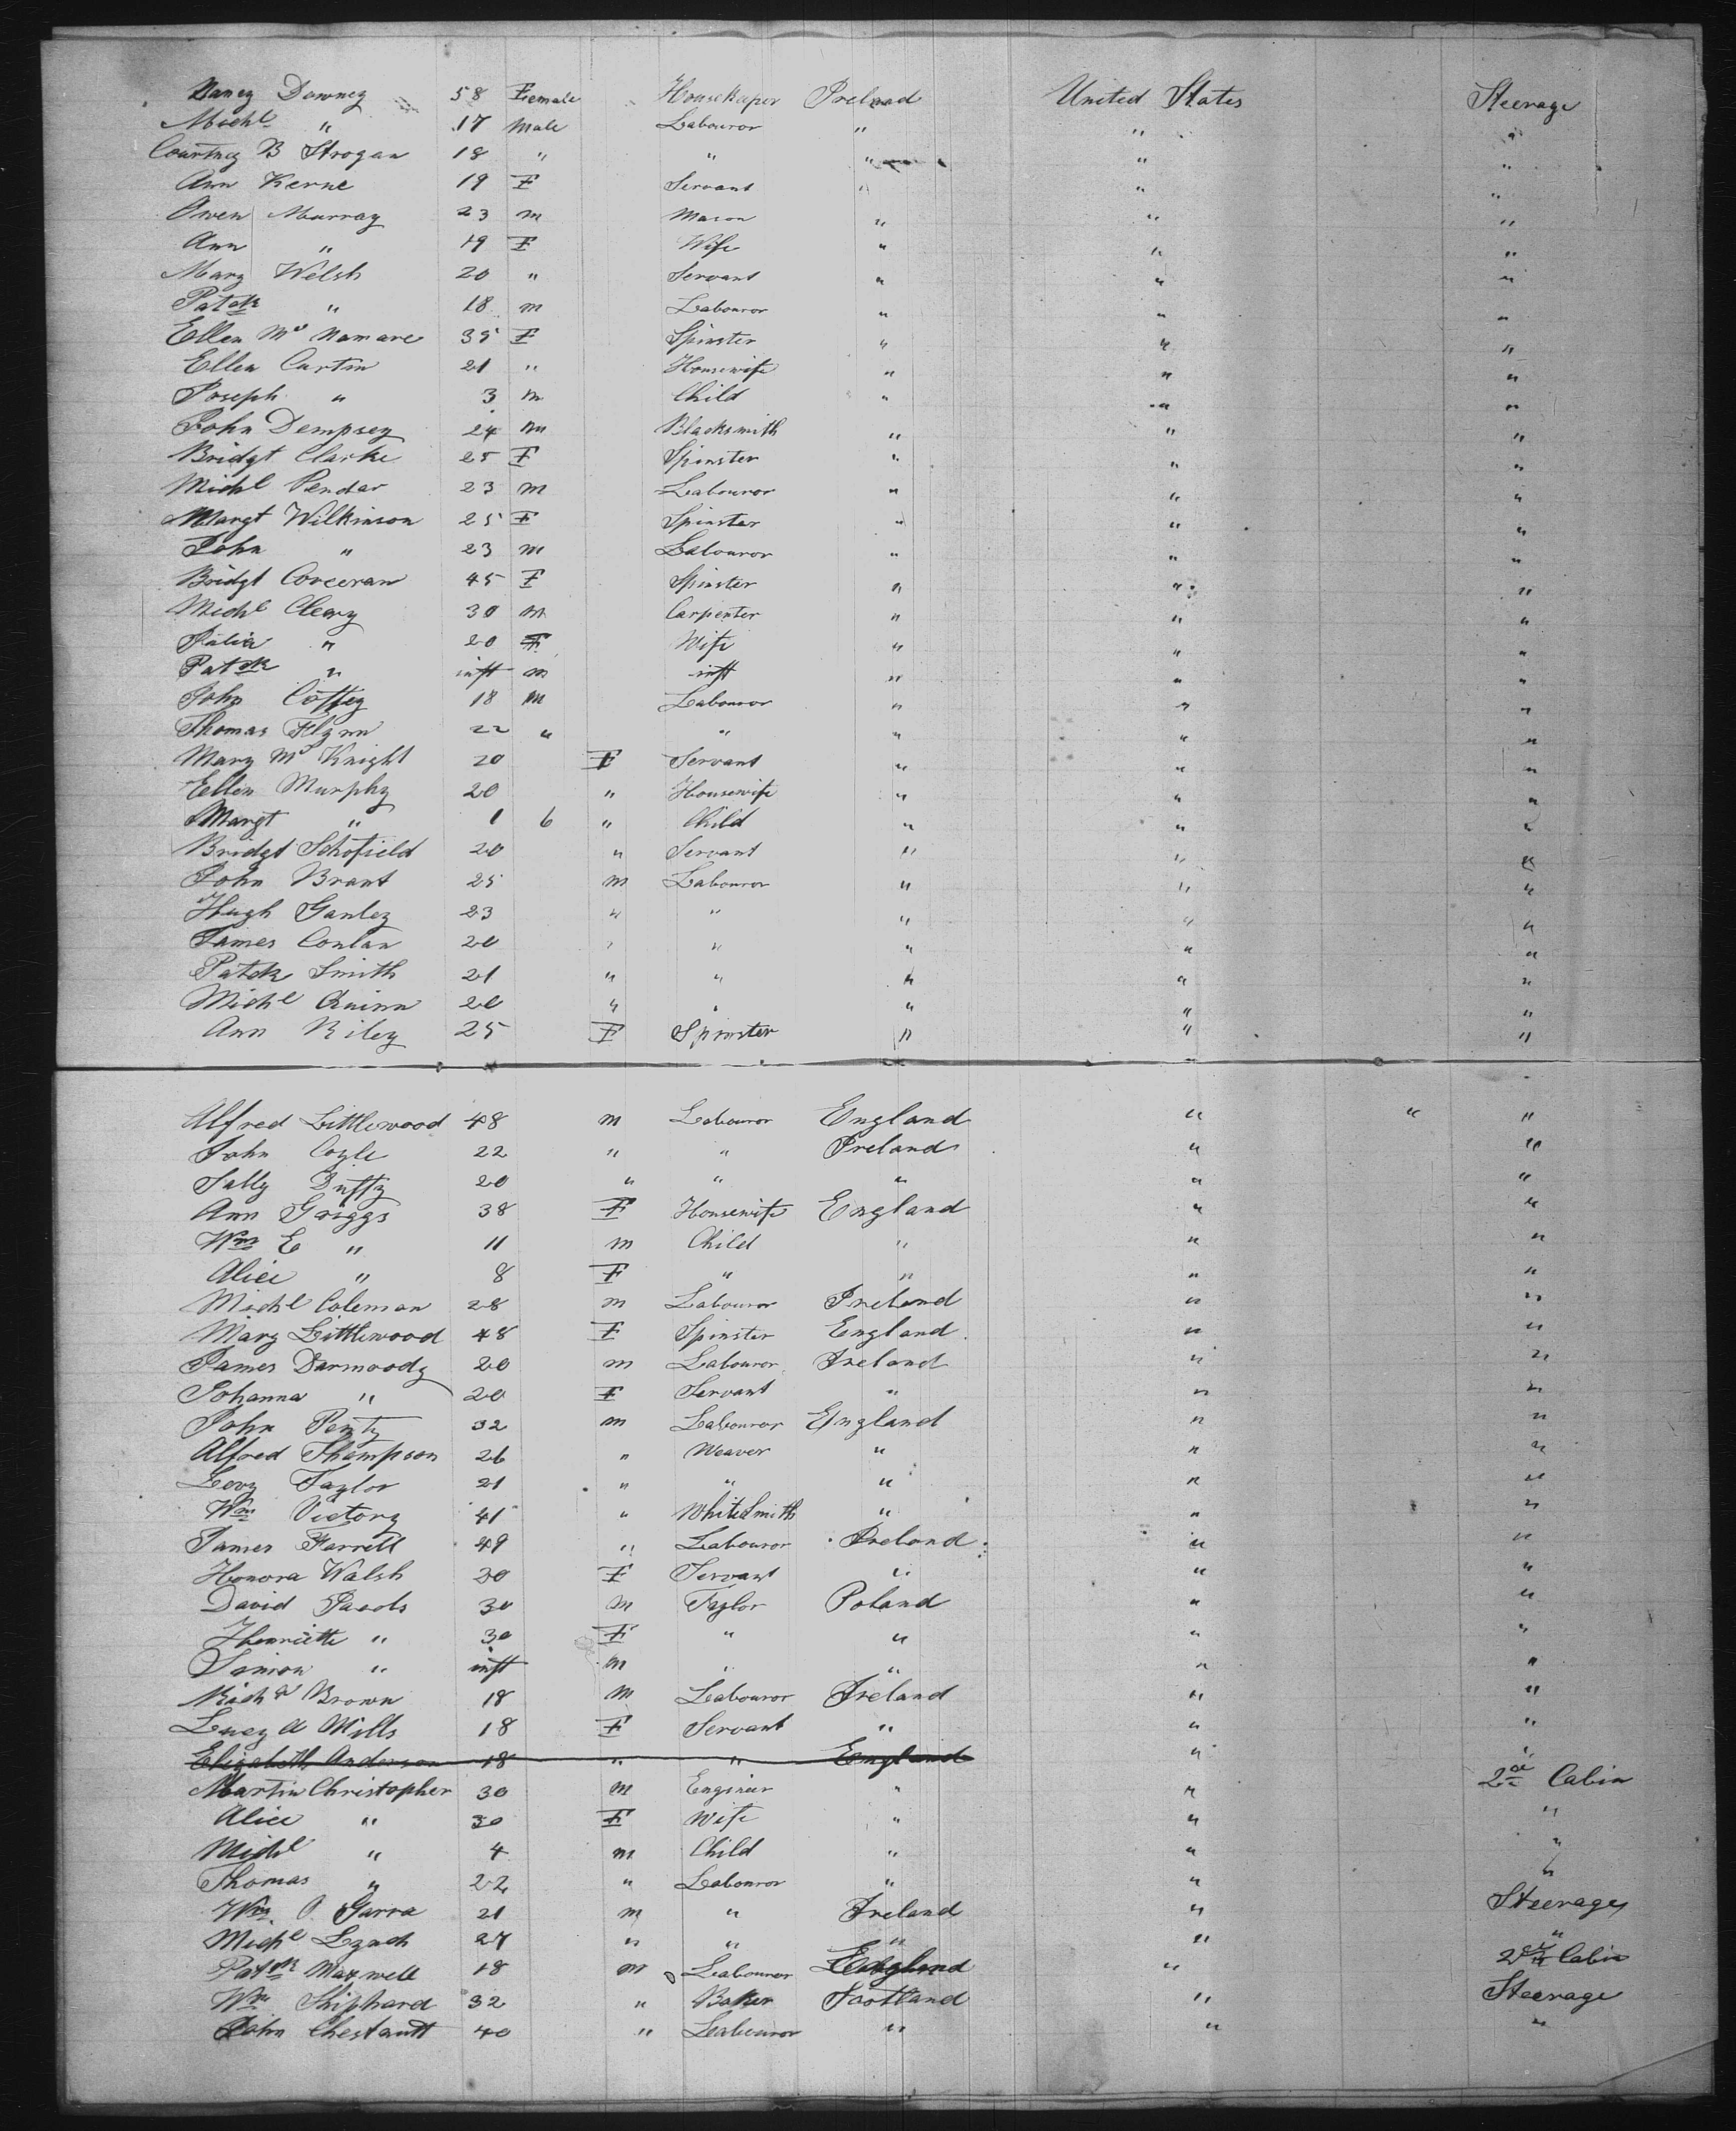 Nancy Downey 58 Female Housekeeper Ireland United States Steerage
Michl " 17 Male Labouror " " "
Courtney B Strogan 18 " " " " "
Ann Kerne 19 F Servant " " "
Owen Murray 23 m Mason " " "
Ann " 19 F Wife " " "
Mary Welsh 20 " Servant " " "
Patck " 18 m Labouror " " "
Ellen Mc Namare 35 F Spinster " " "
Ellen Curtin 21 " Housewife " " "
Joseph " 3 m Child " " "
John Dempsey 24 m Blacksmith " " "
Bridgt Clarke 25 F Spinster " " "
Michl Pendar 23 m Labouror " " "
Margt Wilkinson 25 F Spinster " " "
John " 23 m Labouror " " "
Bridgt Corceran 45 F Spinster " " "
Michl Cleary 30 m Carpenter " " "
Julia " 20 F Wife " " "
Patck " inft m inft " " "
John Coffey 18 m Labouror " " "
Thomas Flynn 22 " " " " "
Mary Mc Knight 20 F Servant " " "
Ellen Murphy 20 " Housewife " " "
Margt " 1 6 " Child " " "
Bridgt Schofield 20 " Servant " " "
John Brant 25 m Labouror " " "
Hugh Ganley 23 " " " " "
James Conlan 20 " " " " "
Patck Smith 21 " " " " "
Michl Quinn 20 " " " " "
Ann Riley 25 F Spinster " " "
Alfred Littlewood 48 m Labouror England " " "
John Coyle 22 " " Ireland " "
Sally Duffy 20 " " " " "
Ann Griggs 38 F Housewife England " "
Wm E " 11 m Child " " "
Alice " 8 F " " " "
Michl Coleman 28 m Labouror Ireland " "
Mary Littlewood 48 F Spinster England " "
James Darmoody 20 m Labouror Ireland " "
Johanna " 20 F Servant " " "
John Penty 32 m Labouror England " "
Alfred Thompson 26 " Weaver " " "
Levy Taylor 21 " " " " "
Wm Victory 41 " WhiteSmith " " "
James Farrell 49 " Labouror Ireland " "
Honora Walsh 20 F Servant " " "
David Jacobs 30 m Taylor Poland " "
Henriette " 30 F " " " "
Simon " inft m " " " "
Richd Brown 18 m Labouror Ireland " "
Lucy A Mills 18 F Servant " " "
Elizabeth Anderson 18 " " England " "
Martin Christopher 30 m Engineer " " 2nd Cabin
Alice " 30 F Wife " " "
Michl " 4 m Child " " "
Thomas " 22 " Labouror " " "
Wm O Garra 21 m " Ireland " Steerage
Michl Lynch 27 " " " " "
Patck Maxwell 18 m Labouror England " 2nd Cabin
Wm Shiphard 32 " Baker Scotland " Steerage
John Chestantt 40 " Labouror " " "